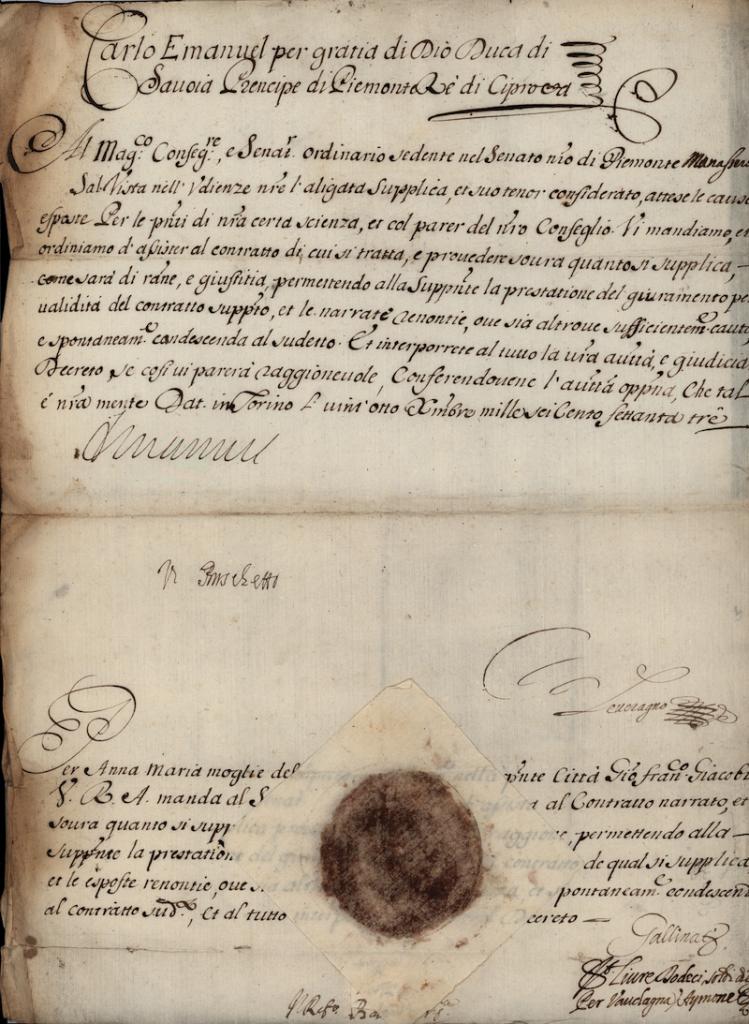 Carlo Emanuel per gratia di Dio Duca di
Sauoia Prencipe di Piemonte Rè di Cipro
Al Mag.co Conseg.re, e Senat.r ordinario sedente nel Senato nr̃o di Piemonte
Sal. Vista nell'Vdienze nr̃e l'aligata Supplica, et suo tenor considerato, attese le cause
esposte Per le pñti di nr̃a certa scienza, et col parer del nr̃o Conseglio. Vi mandiamo, et
ordiniamo d'assister al contratto di cui si tratta, e prouedere soura quanto si supplica,
come sarà di rag.ne, e giustitia, permettendo alla Suppñte la prestatione del giuramento per
validità del contratto supp.to, et le narrate renontie, oue sia altroue sufficientem.e cauta,
e spontaneam.e condescenda al sudetto. Et interporrete al tutto la vr̃a autt.à, e giudicial
Decreto, se così vi parerà raggioneuole, Conferendouene l'autt.à oppña, Che tal
è nr̃a mente Dat. in Torino li vint'otto Xmbre mille sei Cento settanta trè
Emanuel
Per Anna Maria moglie del pñte Città Gio fran.co Giacob
V. R. A. manda al S al Contratto narrato, et
soura quanto si suppl e, permettendo alla
suppñte la prestation de qual si supplica
et le esposte renontie, oue s. spontaneam.e condescend
al contratto sud.o, Et al tutto ecreto
Gallinati